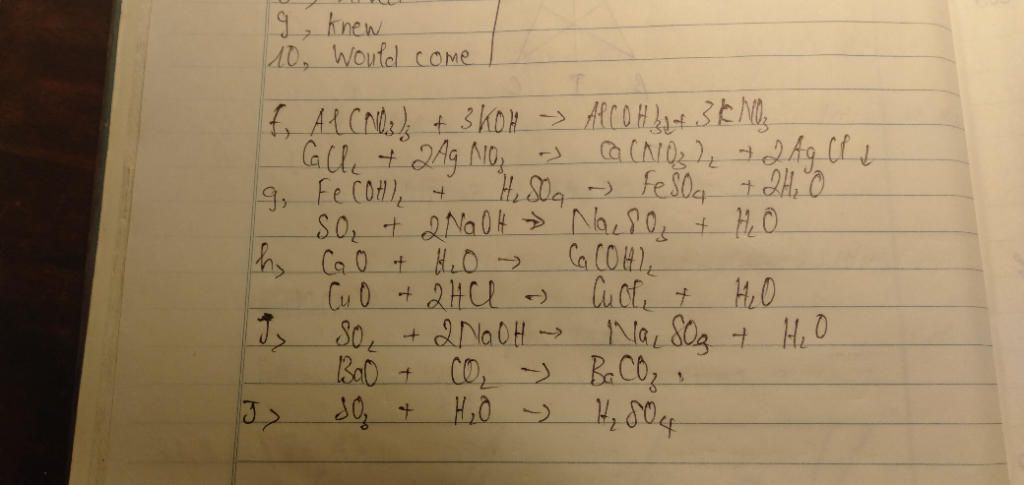 9, knew
10, Would come
f, Al(NO₃)₃ + 3KOH → Al(OH)₃↓ + 3KNO₃
CaCl₂ + 2AgNO₃ → Ca(NO₃)₂ + 2AgCl↓
g, Fe(OH)₂ + H₂SO₄ → FeSO₄ + 2H₂O
SO₂ + 2NaOH → Na₂SO₃ + H₂O
h, CaO + H₂O → Ca(OH)₂
CuO + 2HCl → CuCl₂ + H₂O
J, SO₂ + 2NaOH → Na₂SO₃ + H₂O
BaO + CO₂ → BaCO₃.
J, SO₃ + H₂O → H₂SO₄